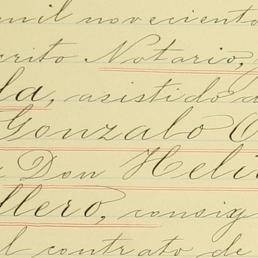 mil noveciento
crito Notario,
la, asistido d
Gonzalo C
Don Heli
llero, consig
l contrato de